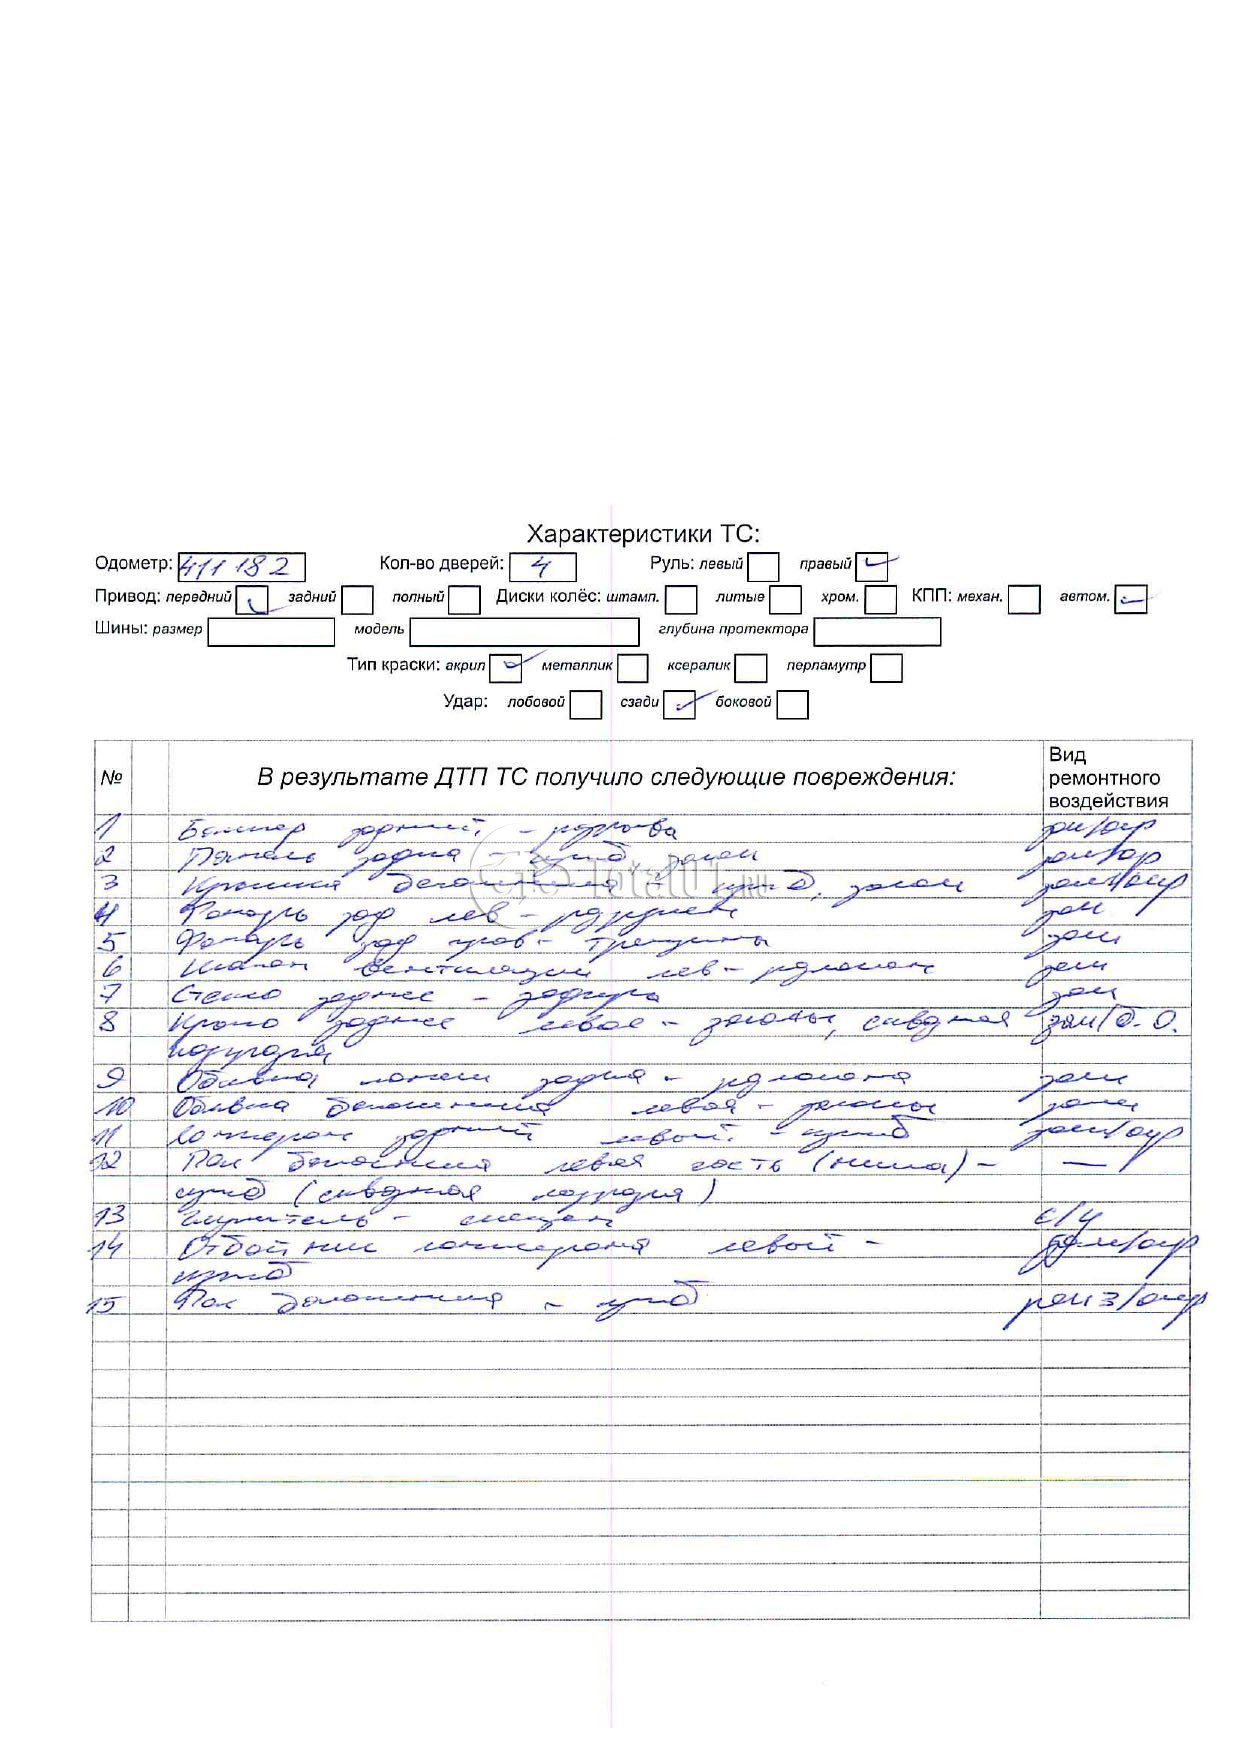 Характеристики ТС:
Одометр: 411182 Кол-во дверей: 4 Руль: левый правый
Привод: передний задний полный Диски колёс: штамп. литые хром. КПП: механ. автом.
Шины: размер модель глубина протектора
Тип краски: акрил металлик ксералик перламутр
Удар: лобовой сзади боковой
№ В результате ДТП ТС получило следующие повреждения: Вид ремонтного воздействия
1 Бампер задний - зам/окр
2 Панель задка - изгиб, залом зам/окр
3 Крышка багажника - изгиб, залом зам/окр
4 Фонарь зад лев - разрушен зам
5 Фонарь зад прав - трещины зам
6 Клапан вентиляции лев - разломан зам
7 Стекло заднее - задиры зам
8 Крыло заднее левое - заломы, сквозная зам/б.О.
коррозия
9 Обивка панели задка - разломана зам
10 Обивка багажника левая - заломы зам
11 Лонжерон задний левый - изгиб зам/окр
12 Пол багажника левая часть (ниша) - —
изгиб (сквозная коррозия)
13 Глушитель - смещен с/у
14 Отбойник лонжерона левый - зам/окр
изгиб
15 Пол багажника - изгиб рем 3/окр
Total01.ru